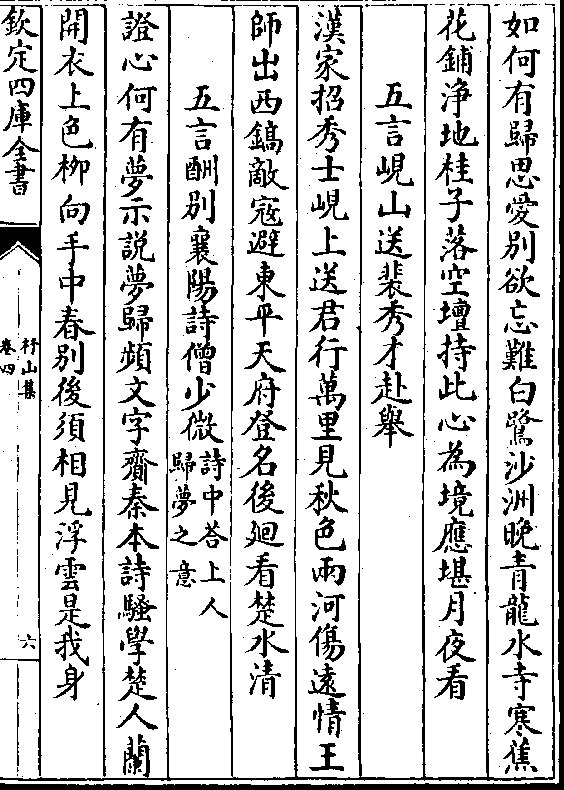 如何有歸思愛別欲忘難白鷺沙洲晚青龍水寺寒蕉
花鋪浄地桂子落空壇持此心為境應堪月夜看
五言峴山送裴秀才赴舉
漢家招秀士峴上送君行萬里見秋色兩河傷遠情王
師出西鎬敵寇避東平天府登名後廻看楚水清
五言酬別襄陽詩僧少微詩中荅上人
歸夢之意
證心何有夢示説夢歸頻文字齎秦本詩騷學楚人蘭
開衣上色栁向手中春別後須相見浮雲是我身
欽定四庫全書
杼山集
卷四
六